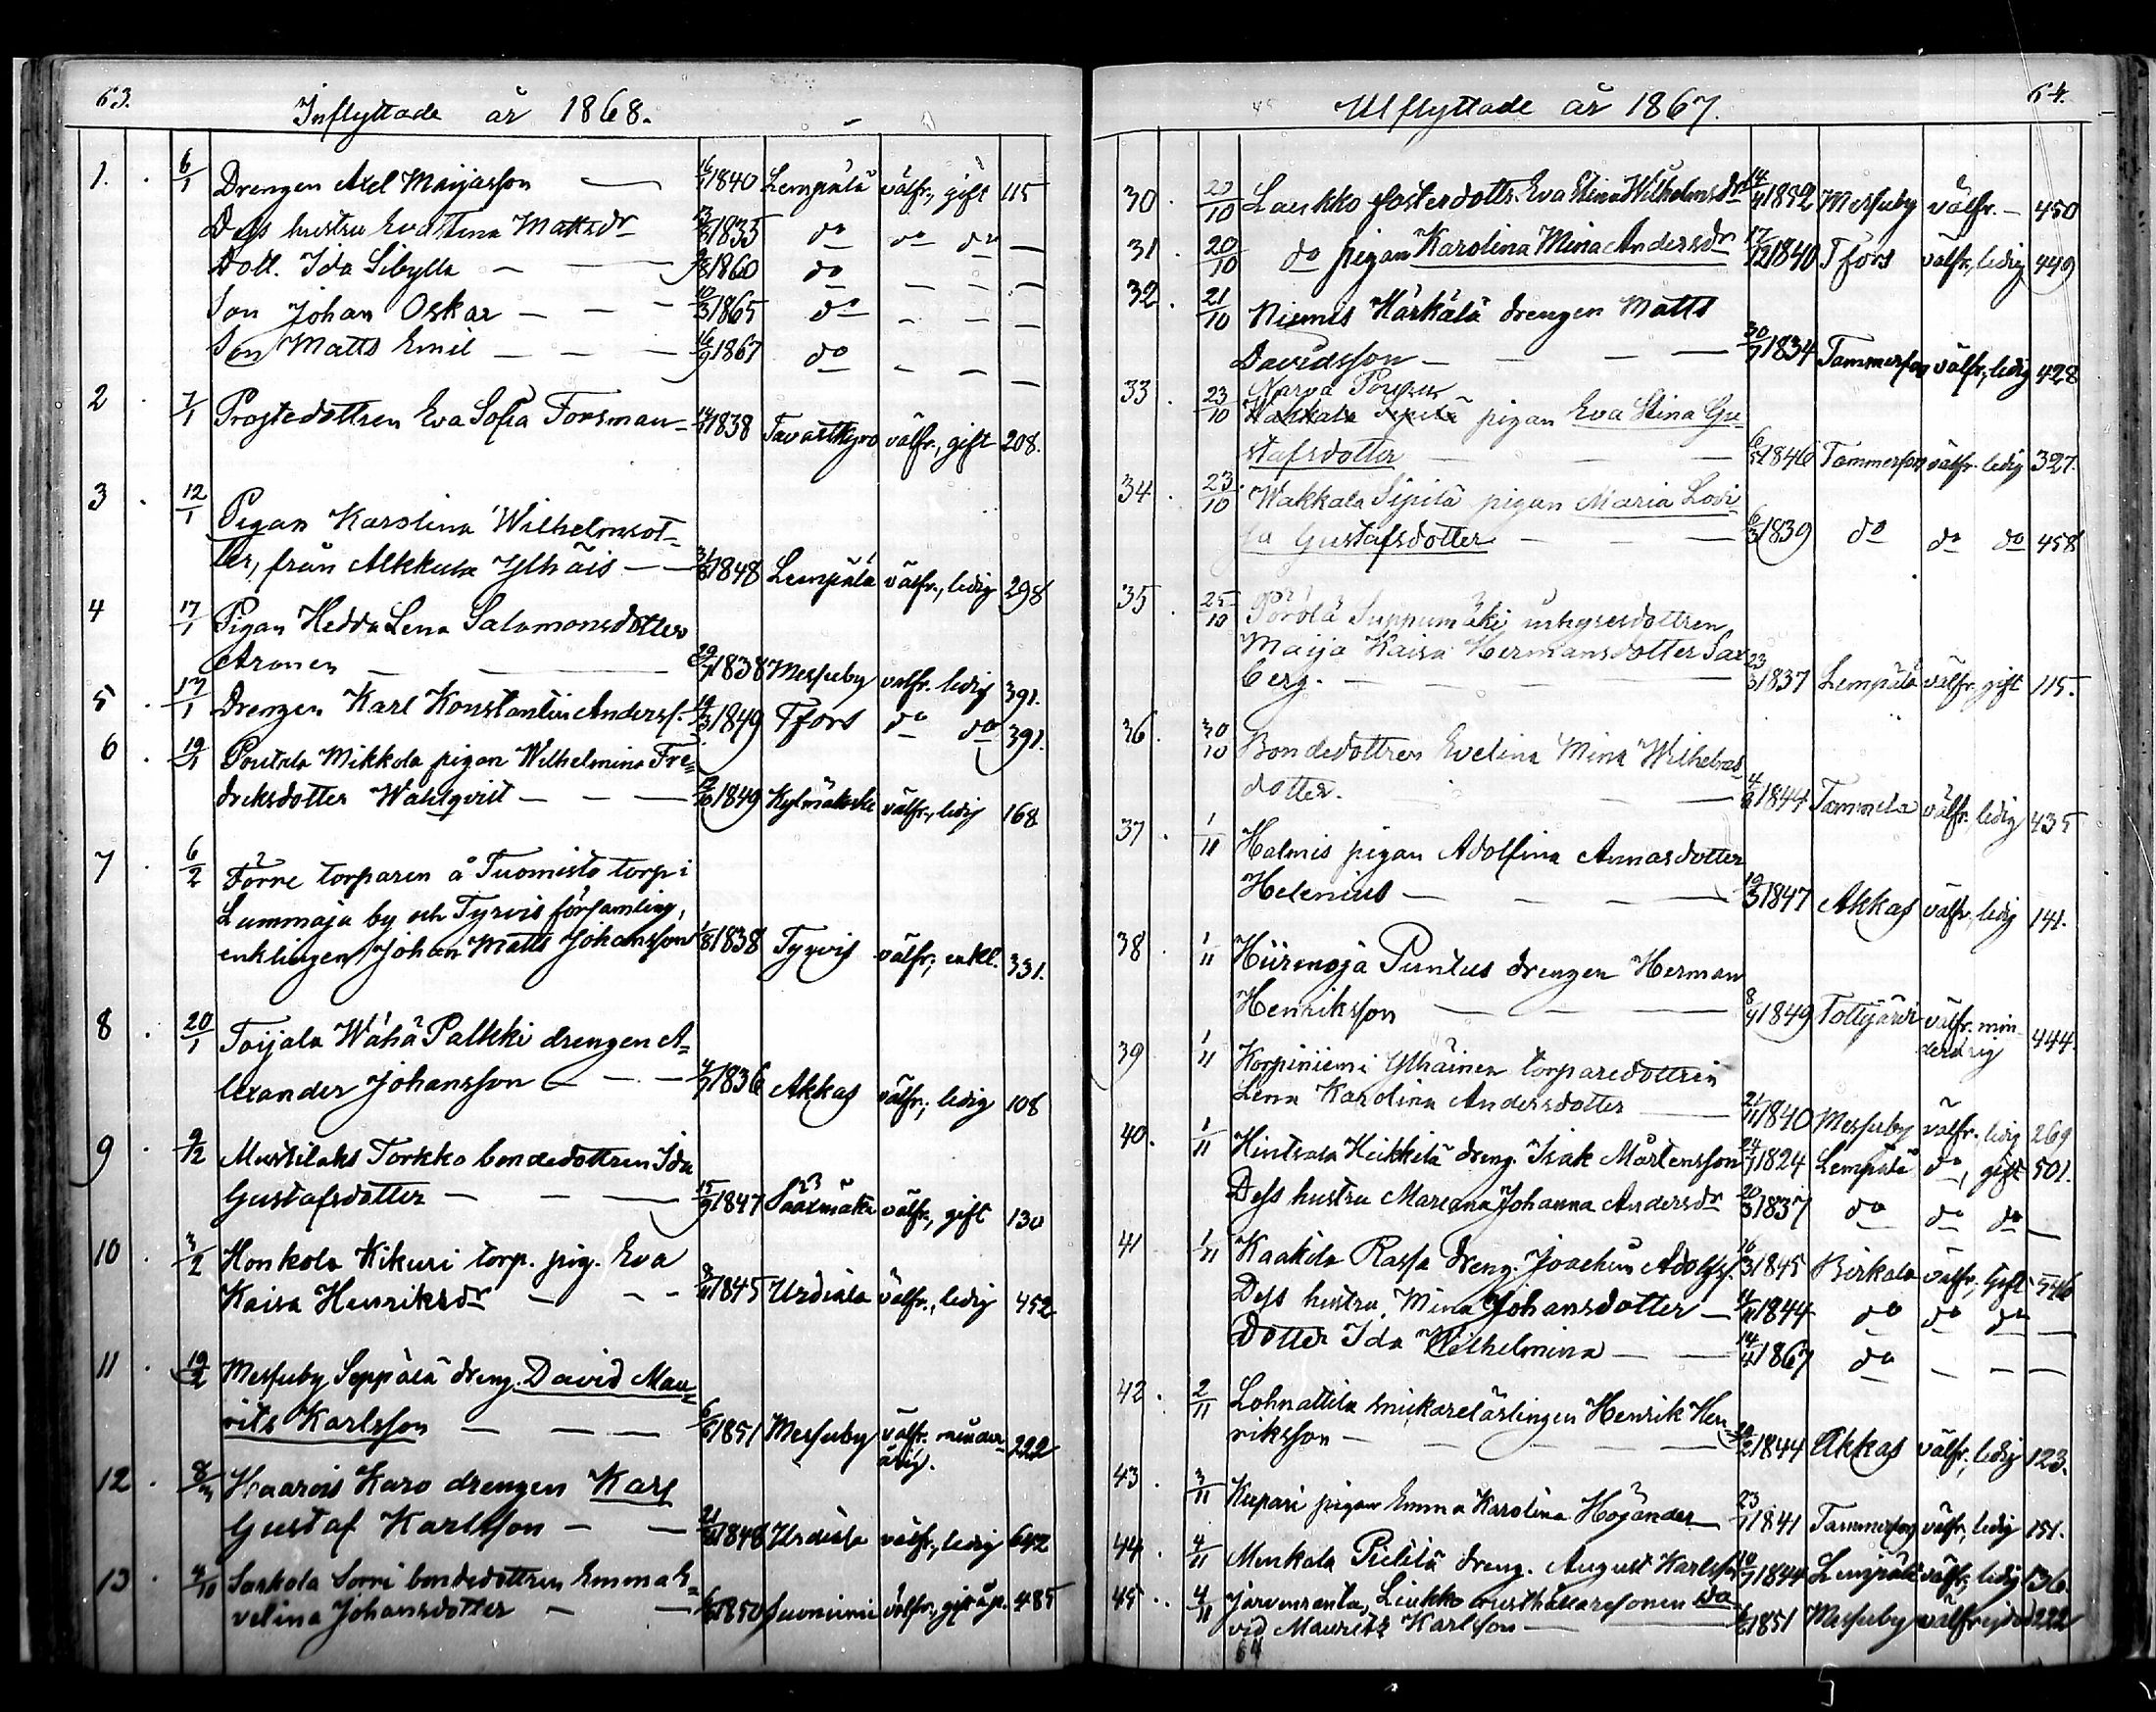 63.
Inflyttade år 1868.
1. 6/1 Drengen Axel Maijasson — 1840 Lempälä välfr., gift 115
Dess hustru Eva Stina Mattsdr 1835 do do do —
Dott. Ida Sibylla — — 1860 do — — —
Son Johan Oskar — — — 10/3 1865 do — — —
Son Matts Emil — — — 16/9 1867 do — — —
2 7/1 Prostedottren Eva Sofia Forsman — 1838 Tavastkyro välfr., gift 208.
3 12/1 Pigan Karolina Wilhelmsdot-
ter, från Alkkula Ylhäis — — 1848 Lempälä välfr., ledig 298
4 17/1 Pigan Hedda Lena Salomonsdotter
Aronen — — 1838 Messuby välfr. ledig 391.
5 17/1 Drengen Karl Konstantin Anderss. 1849 Tfors do do 391.
6 19/1 Poutala Mikkola pigan Wilhelmina Fre-
driksdotter Wahlqvist — — — 1849 Kylmäkoski välfr., ledig 168
7 6/2 Förre torparen å Tuomisto torp i
Lummaja by och Tyrvis församling,
enklingen Johan Matts Johansson 1/8 1838 Tyrvis välfr., enkl. 331.
8 20/1 Toijala Wähä Palkki drengen A-
lexander Johansson — — — 1836 Akkas välfr., ledig 108
9 9/2 Mustilaks Torkko bondedottren Ida
Gustafsdotter — — — 15/9 1847 Sääxmäki välfr., gift 130
10 3/2 Honkola Kikuri torp. pig. Eva
Kaisa Henriksdr — — — 1845 Urdiala välfr., ledig 452
11 19/2 Messuby Seppälä dreng. David Mau-
ritz Karlsson — — — 1851 Messuby välfr. minder- 222
årig.
12 8/3 Haarois Karo drengen Karl
Gustaf Karlsson — — 1848 Urdiala välfr., ledig 642
13 4/10 Saskola Sorri bondedottren Emma E-
velina Johansdotter — — 1850 Suoniemi välfr., gift 485
Utflyttade år 1867.
64.
30. 20/10 Laukko fosterdottr. Eva Stina Wilhelmsdr 1852 Messuby välfr. — 450
31. 20/10 do pigan Karolina Mina Andersdr 17/12 1840 Tfors välfr., ledig 449
32. 21/10 Niemis Härkälä drengen Matts
Davidsson — — — 30/7 1834 Tammerfors välfr., ledig 428
33. 23/10 Narva
Wakkala Sipilä pigan Eva Stina Gu-
stafsdotter — — — 1846 Tammerfors välfr. ledig 327.
34. 23/10 Wakkala Sipilä pigan Maria Lovi-
sa Gustafsdotter — — 6/3 1839 do do do 458
35. 25/10 Suppumäki inhysesdottren
Maija Kaisa Hermansdotter Sax-
berg. — — — 23/3 1837 Lempälä välfr. gift 115.
36. 30/10 Bondedottren Evelina Mina Wilhelms-
dotter. — — 1844 Tammela välfr., ledig 435
37. 1/11 Halmis pigan Adolfina Annasdotter
Helenius — — — 19/3 1847 Akkas välfr., ledig 141.
38. 1/11 Hiirenoja Puntus drengen Herman
Henriksson — — — 1849 Tottijärvi välfr. min- 444.
derårig
39 1/11 Korpiniemi Ylhäinen torparedottren
Lena Karolina Andersdotter — 21/11 1840 Messuby välfr. ledig 269
40. 1/11 Hintsala Heikkilä dreng. Isak Mårtensson 1824 Lempälä do, gift 501.
Dess hustru Mariana Johanna Andersdr 20/3 1837 do do do —
41 1/11 Kaakila Rassa dreng. Joachim Adolfss. 1845 Birkala välfr., gift 546
Dess hustru, Mina Johansdotter — 1844 do do do —
Dotter Ida Wilhelmina — — 14/4 1867 do — — —
42. 2/11 Lohnattila snickarelärlingen Henrik Hen-
riksson — — — 1844 Akkas välfr., ledig 123.
43. 3/11 Kupari pigan Emma Karolina Höjander — 1841 Tammerfors välfr., ledig 151.
44. 4/11 Menkala Pietilä dreng. August Karlsson 1844 Lempälä välfr., ledig 136
45.. 4/11 Järvenranta, Liukko rusthållaresonen Da-
vid Mauritz Karlsson — 1851 Messuby 222
64